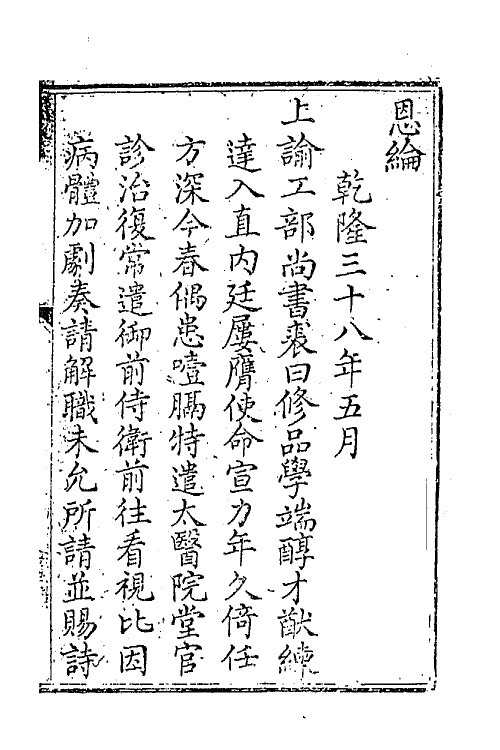 恩綸
乾隆三十八年五月
上諭工部尚書裘曰修品學端醇才猷練
達入直内廷屢膺使命宣力年久倚任
方深今春偶患噎膈特遣太醫院堂官
診治復常遣御前侍衛前往看視比因
病體加劇奏請解職未允所請並賜詩